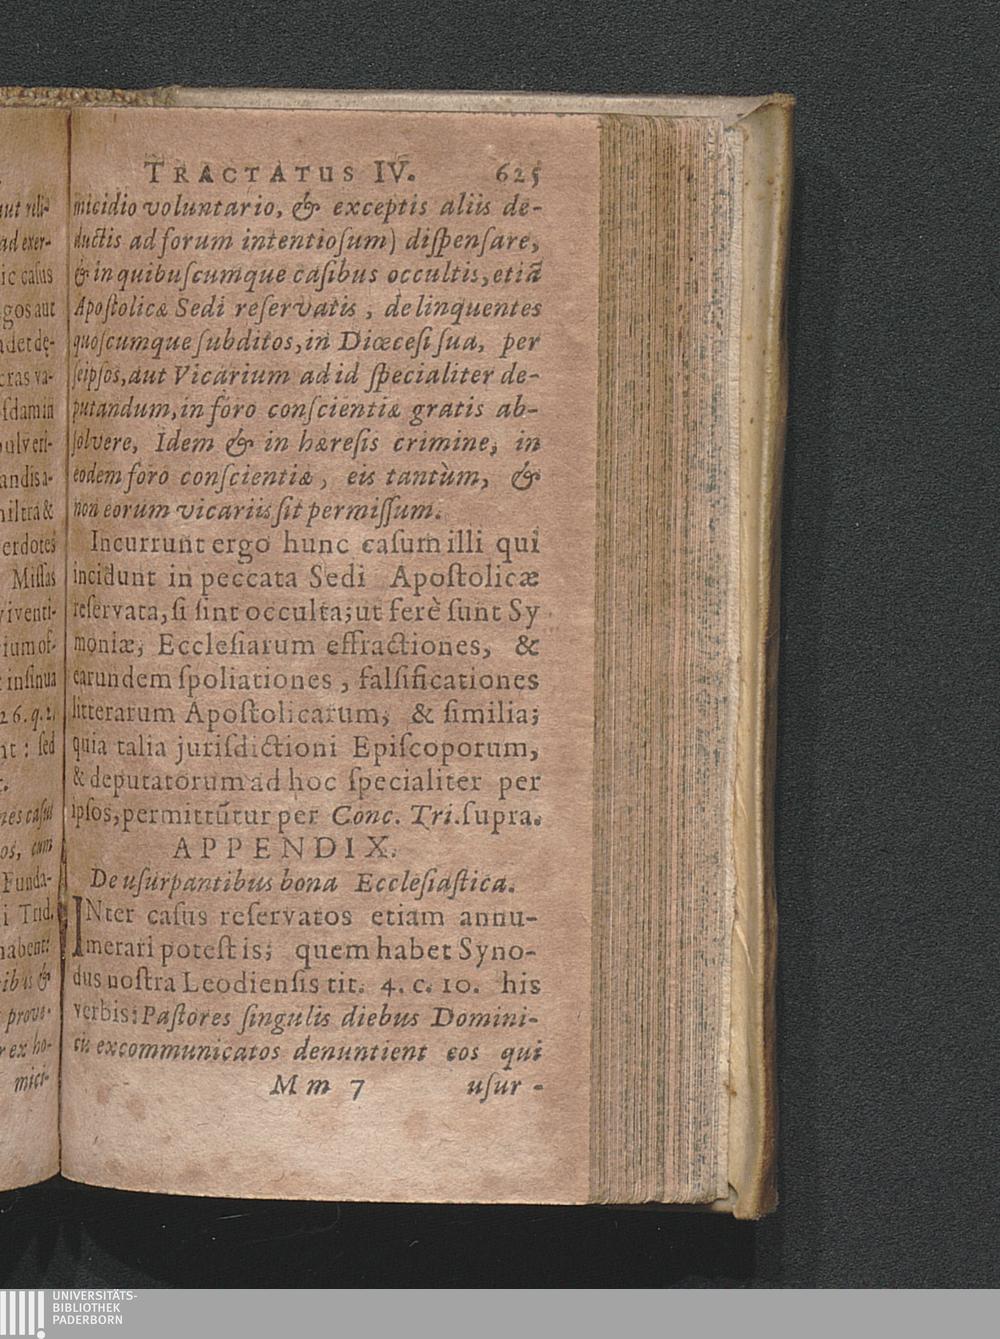 TRACTATUS IV. 625
micidio voluntario, & exceptis aliis de-
ductis ad forum intentiosum) dispensare,
& in quibuscumque casibus occultis, etiã
Apostolicæ Sedi reservatis, delinquentes
quoscumque subditos, in Diœcesi sua, per
seipsos, aut Vicarium ad id specialiter de-
putandum, in foro conscientiæ gratis ab-
solvere, Idem & in hæresis crimine, in
eodem foro conscientiæ, eis tantùm, &
non eorum vicariis sit permissum.
Incurrunt ergo hunc casum illi qui
incidunt in peccata Sedi Apostolicæ
reservata, si sint occulta; ut ferè sunt Sy
moniæ, Ecclesiarum effractiones, &
earundem spoliationes, falsificationes
litterarum Apostolicarum, & similia;
quia talia jurisdictioni Episcoporum,
& deputatorum ad hoc specialiter per
ipsos, permittũtur per Conc. Tri. supra.
APPENDIX.
De usurpantibus bona Ecclesiastica.
INter casus reservatos etiam annu-
merari potest is; quem habet Syno-
dus nostra Leodiensis tit. 4. c. 10. his
verbis: Pastores singulis diebus Domini-
cis excommunicatos denuntient eos qui
Mm 7 usur-
ad exer-
ic casus
gos aut
cras va-
sdam in
andis a-
erdotes
Missas
viventi-
rium of-
insinua
26. q. 2.
nt: sed
os, cum
Funda-
i Trid.
habent:
ibus &
prove-
r ex ho-
mici-
UNIVERSITÄTS-
BIBLIOTHEK
PADERBORN